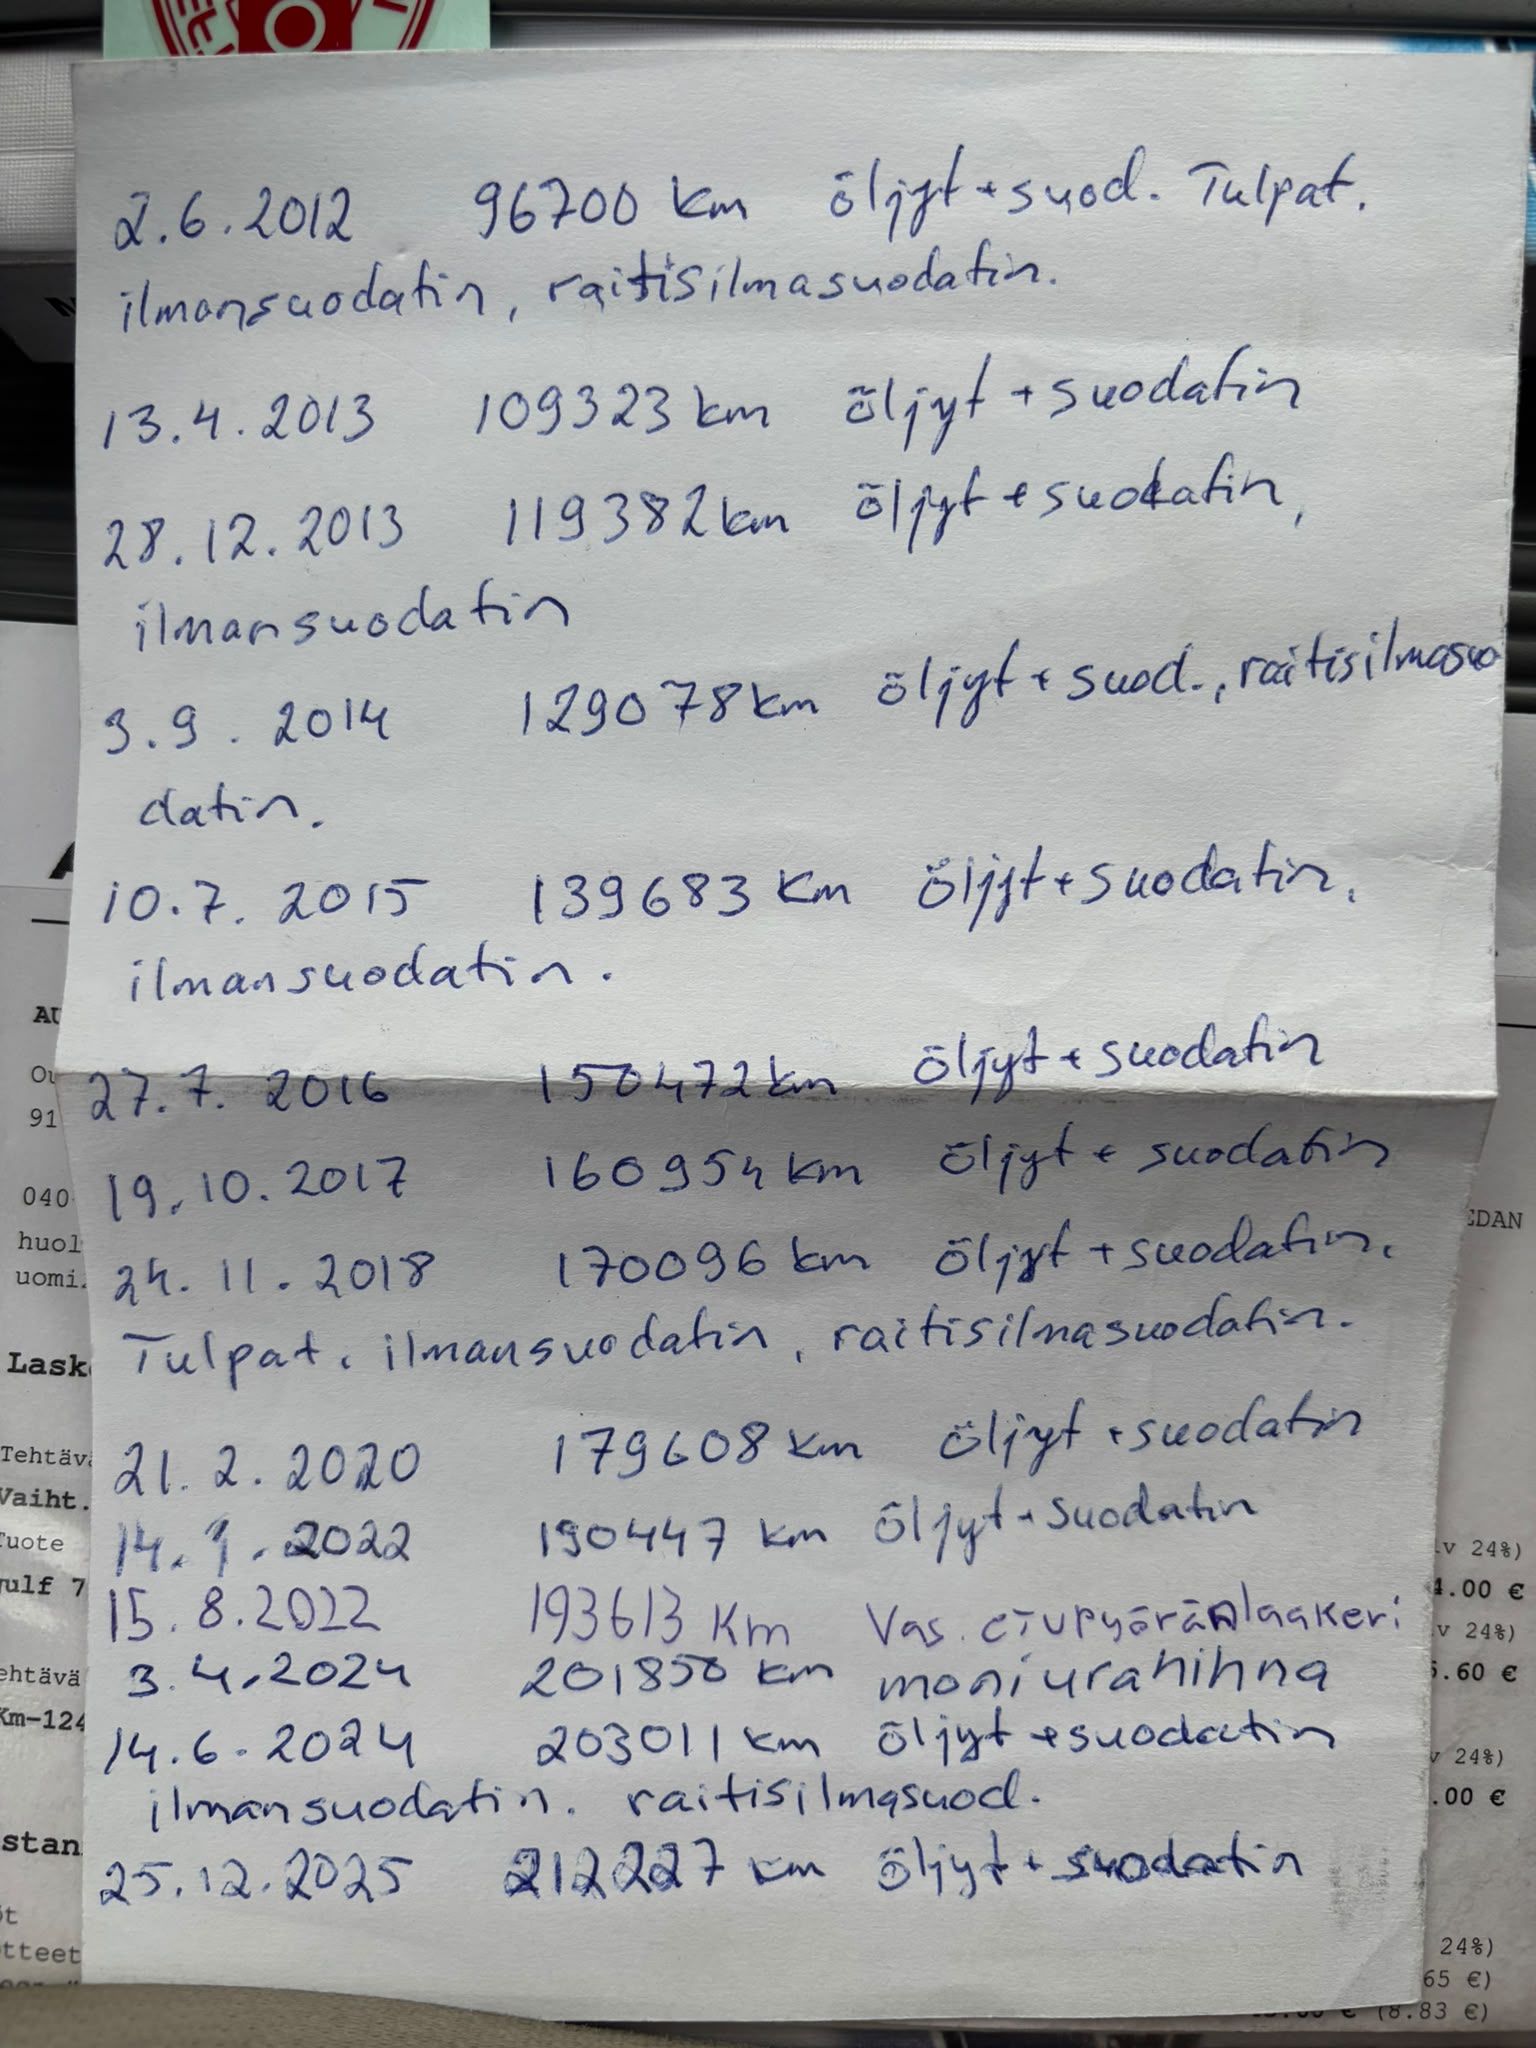 2.6.2012 96700 km öljyt + suod. Tulpat.
ilmansuodatin, raitisilmasuodatin.
13.4.2013 109323 km öljyt + suodatin
28.12.2013 119382 km öljyt + suodatin,
ilmansuodatin
3.9.2014 129078 km öljyt + suod., raitisilmasuo
datin.
10.7.2015 139683 km öljyt + suodatin,
ilmansuodatin.
27.7.2016 150472 km öljyt + suodatin
19.10.2017 160954 km öljyt + suodatin
24.11.2018 170096 km öljyt + suodatin,
Tulpat, ilmansuodatin, raitisilmasuodatin.
21.2.2020 179608 km öljyt + suodatin
14.1.2022 190447 km öljyt + suodatin
15.8.2022 193613 Km Vas. etupyöränlaakeri
3.4.2024 201850 km moniurahihna
14.6.2024 203011 km öljyt + suodatin
ilmansuodatin. raitisilmasuod.
25.12.2025 212227 km öljyt + suodatin
AU
Ou
91
040
huol
uomi
EDAN
Lask
Tehtäv
Vaiht.
Tuote
gulf 7
v 24%)
4.00 €
v 24%)
5.60 €
ehtävä
Km-124
v 24%)
.00 €
stan
öt
tteet
24%)
65 €)
€ (8.83 €)